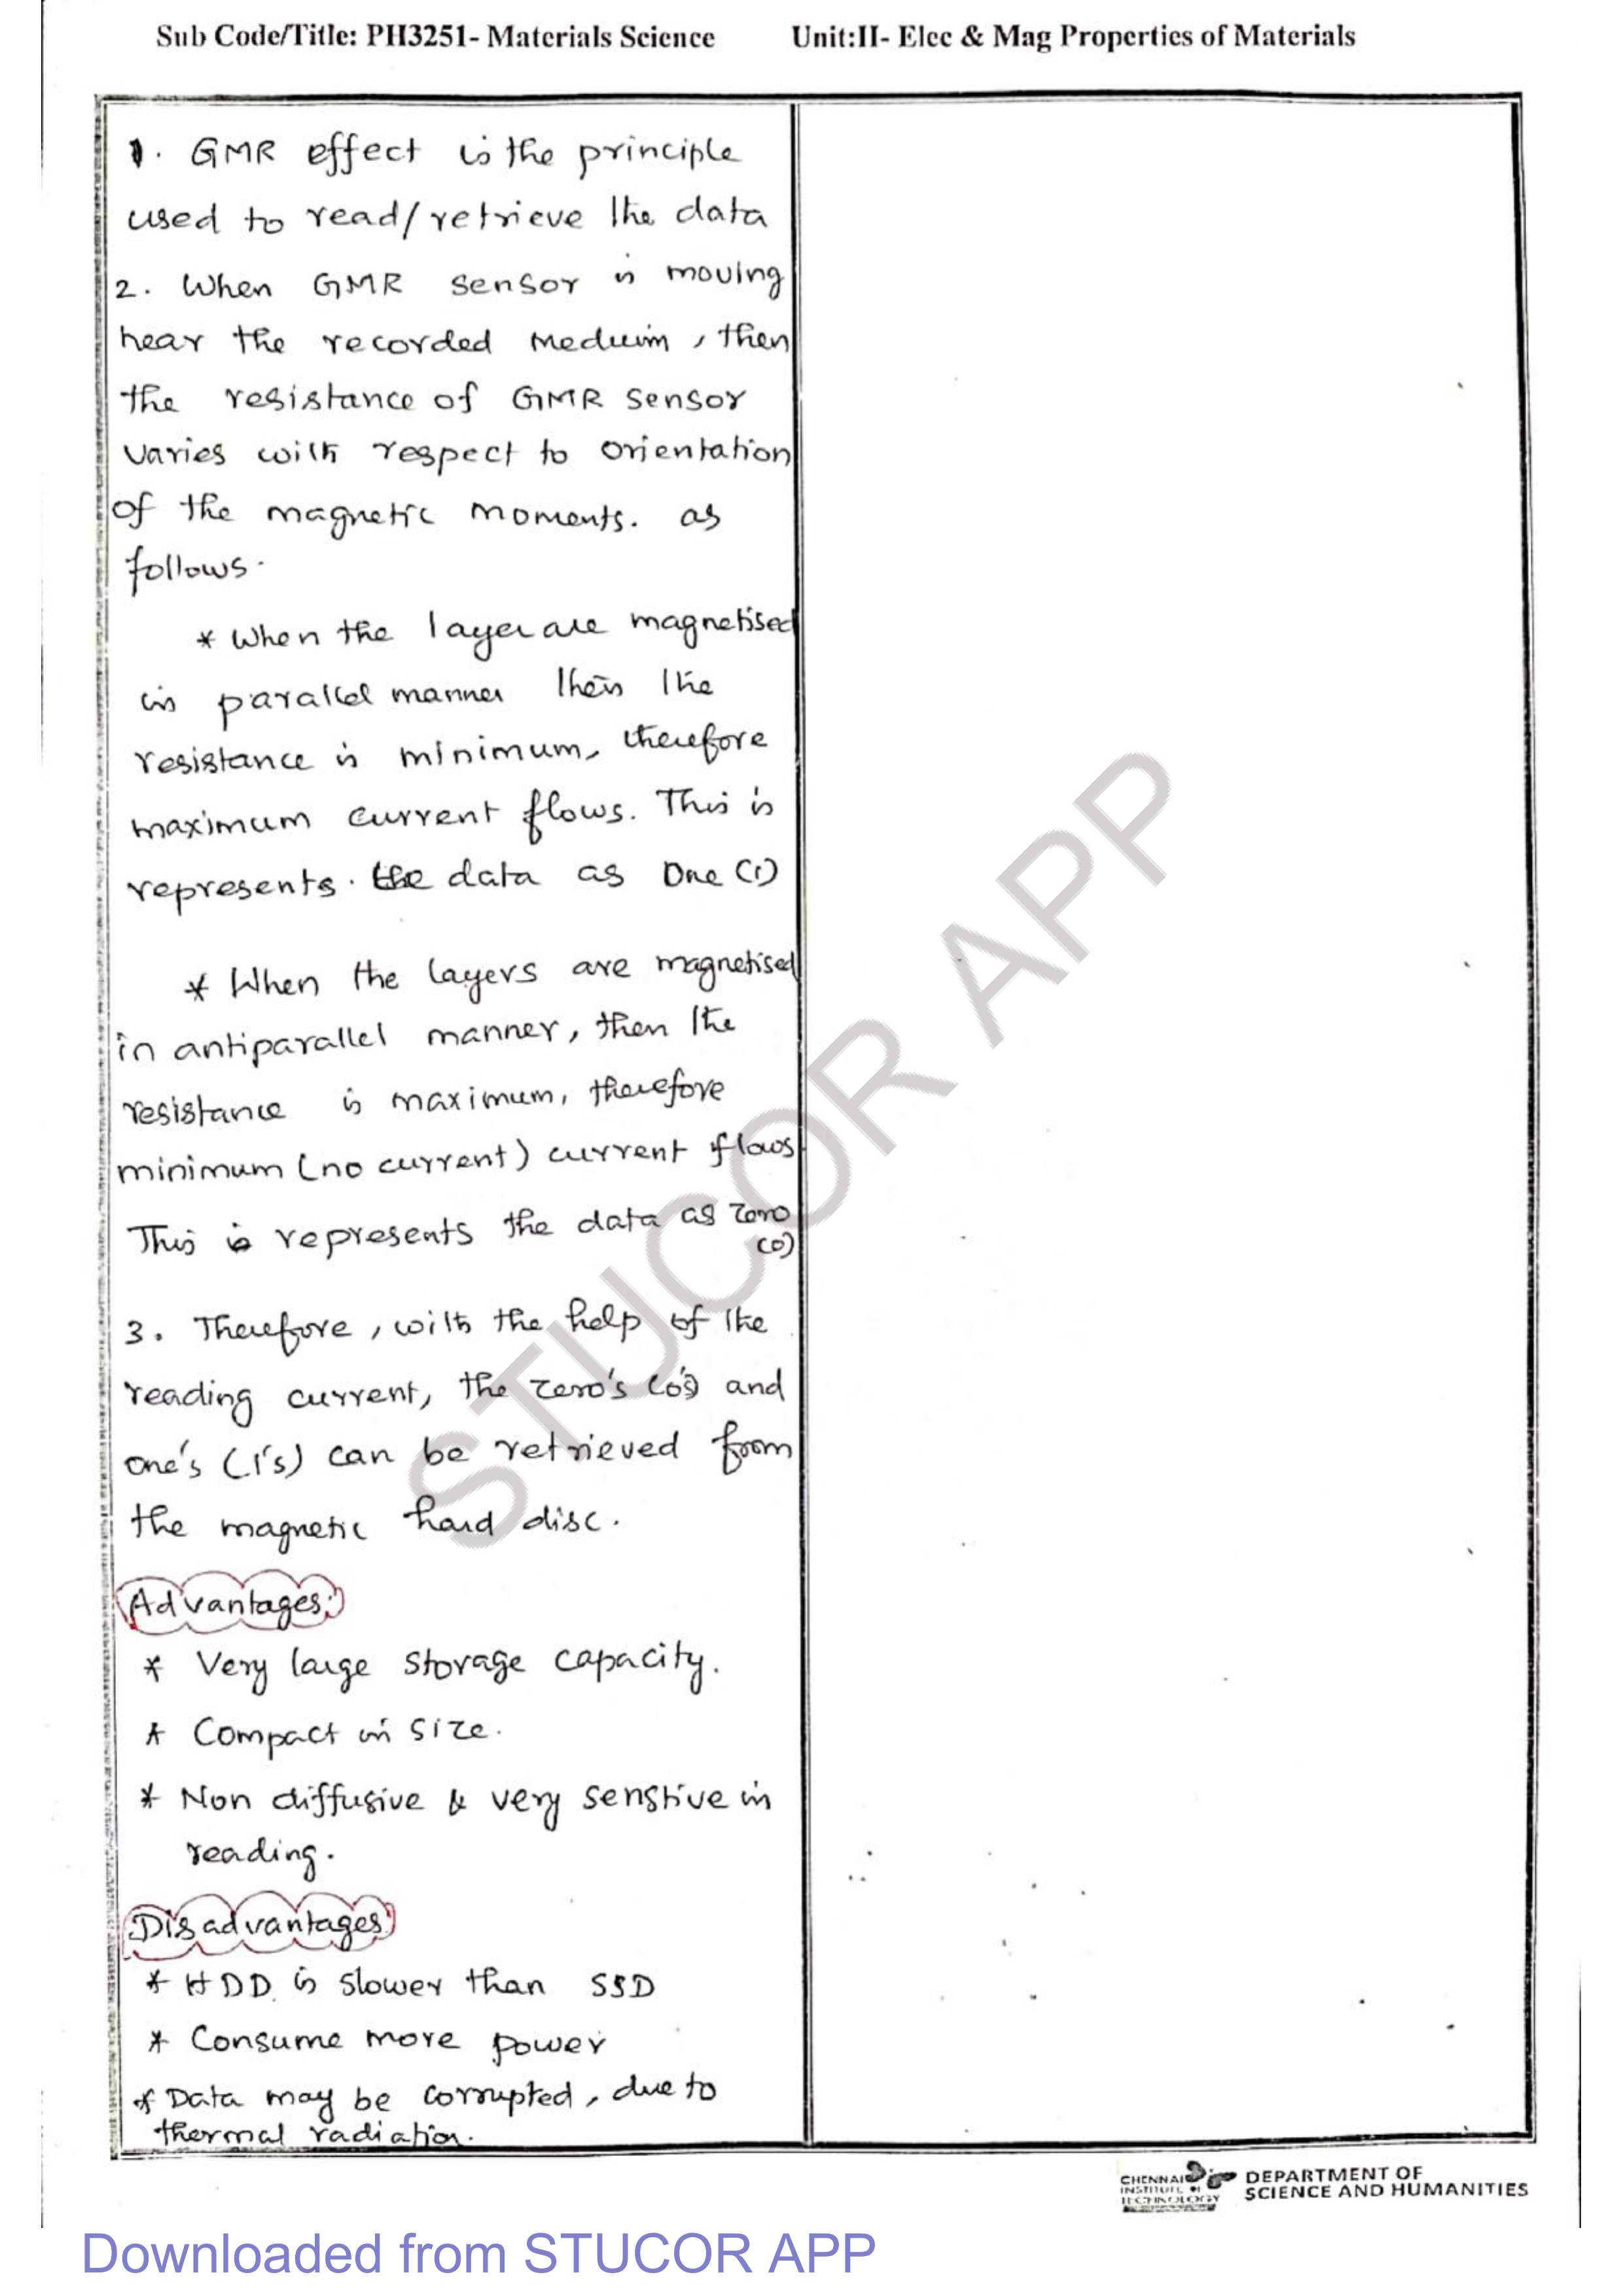 Sub Code/Title: PH3251- Materials Science Unit:II- Elec & Mag Properties of Materials
1. GMR effect is the principle
used to read/retrieve the data
2. When GMR sensor is moving
near the recorded medium, then
the resistance of GMR sensor
varies with respect to orientation
of the magnetic moments. as
follows.
* When the layer are magnetised
in parallel manner then the
resistance is minimum, therefore
maximum current flows. This is
represents. the data as One (1)
* When the layers are magnetised
in antiparallel manner, then the
resistance is maximum, therefore
minimum (no current) current flows
This is represents the data as zero
(0)
3. Therefore, with the help of the
reading current, the zero's (0's) and
one's (1's) can be retrieved from
the magnetic hard disc.
Advantages:
* Very large storage capacity.
* Compact in size.
* Non diffusive & very senstive in
reading.
Disadvantages:
* HDD is slower than SSD
* Consume more power
* Data may be corrupted, due to
thermal radiation.
STUCOR APP
CHENNAI
INSTITUTE OF
TECHNOLOGY
DEPARTMENT OF
SCIENCE AND HUMANITIES
Downloaded from STUCOR APP